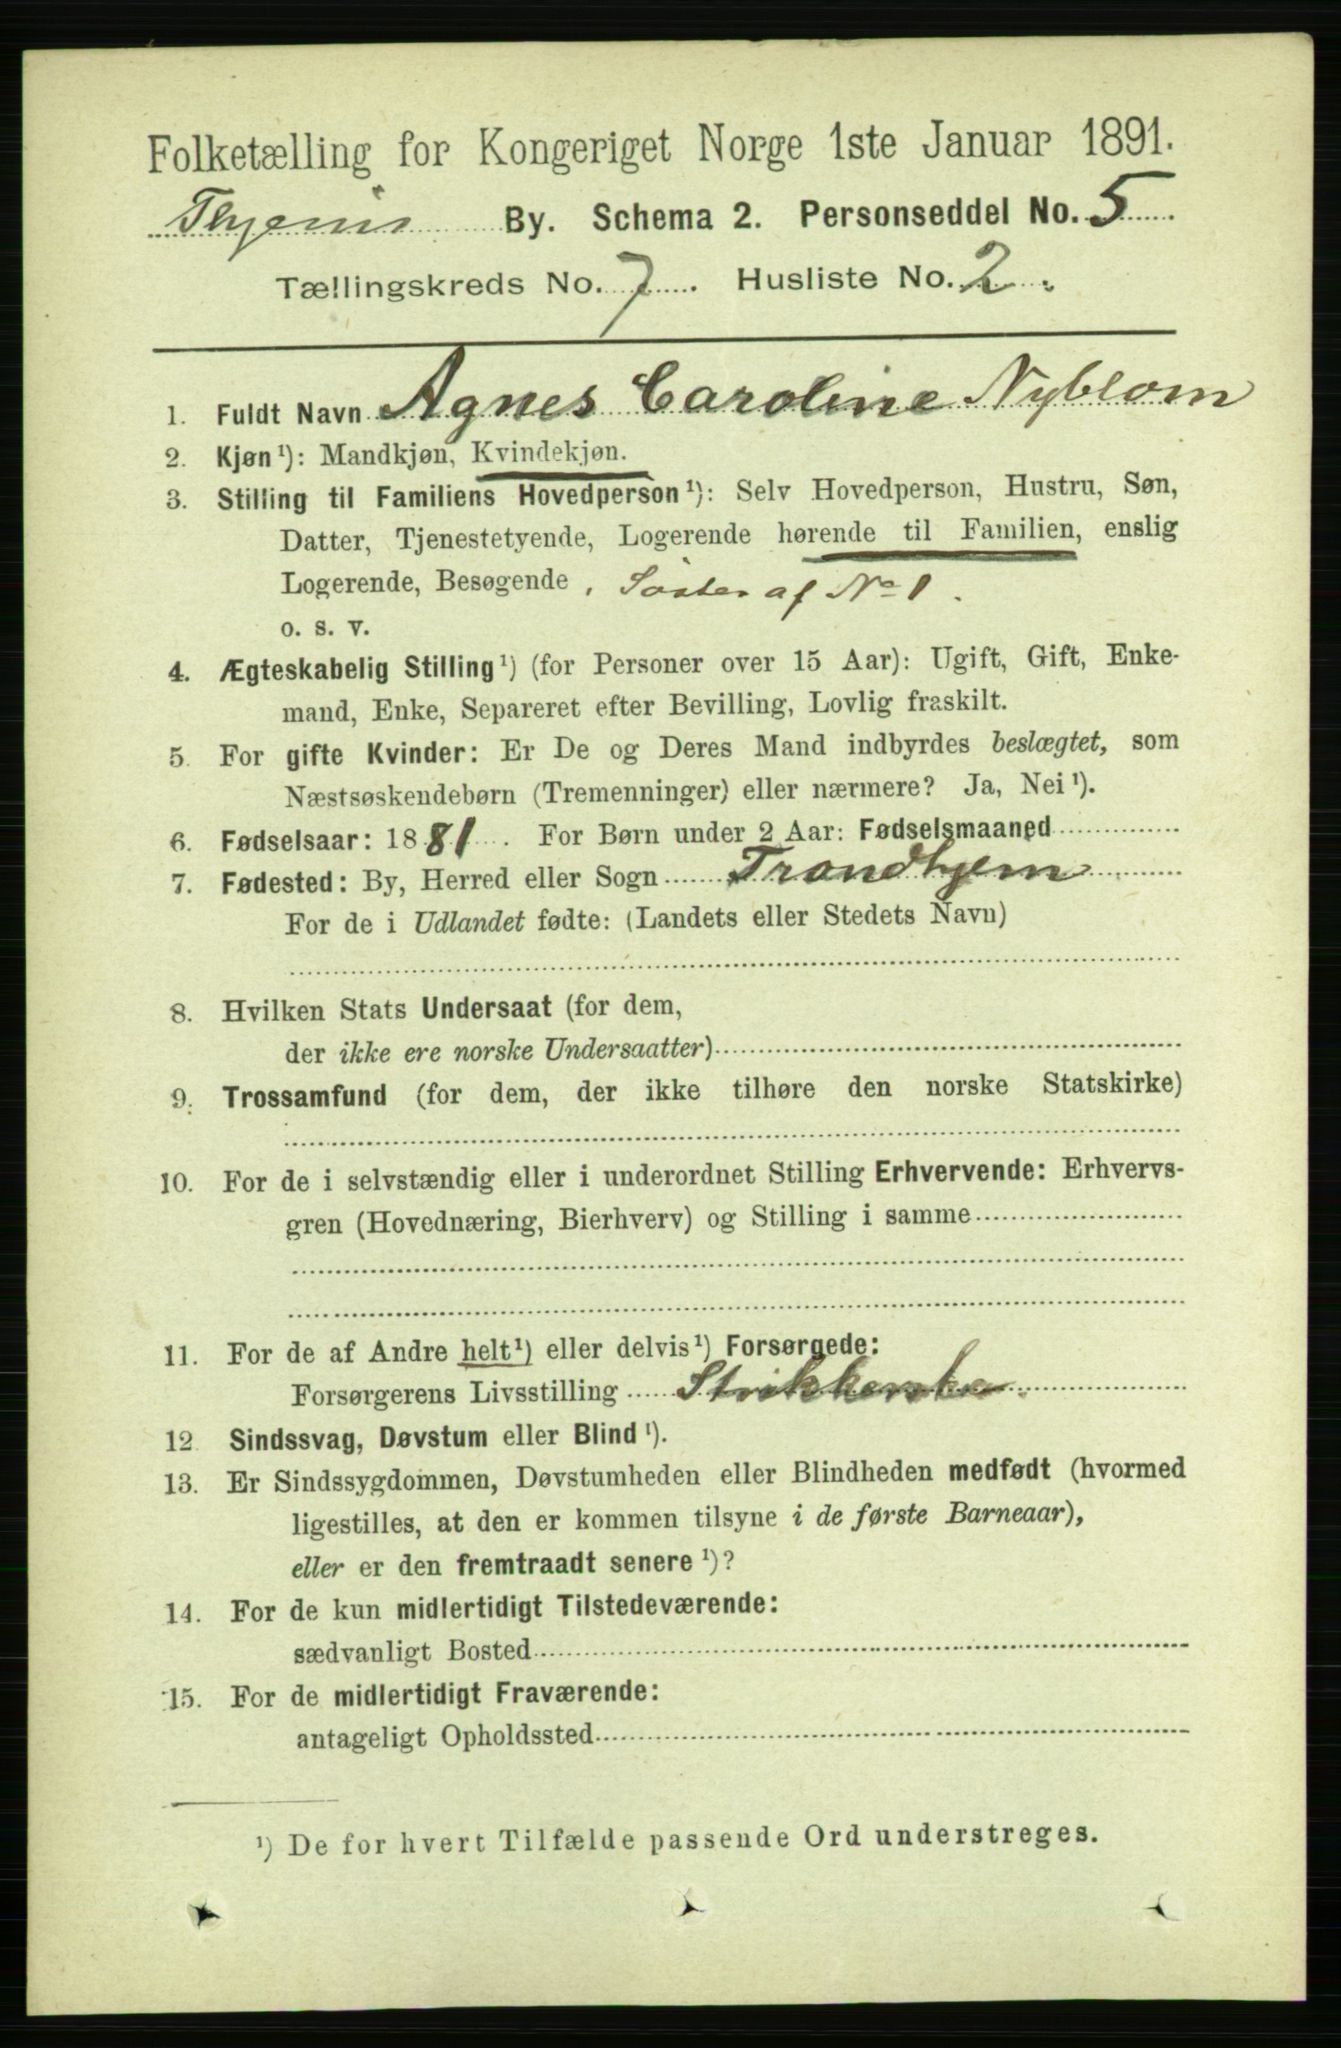 Folketælling for Kongeriget Norge 1ste Januar 1891.
By. Schema 2. Personseddel No. 5
Tællingskreds No. 7. Husliste No. 2.
1. Fuldt Navn Agnes Caroline Nyblom
2. Kjøn¹): Mandkjøn, Kvindekjøn.
3. Stilling til Familiens Hovedperson¹): Selv Hovedperson, Hustru, Søn,
Datter, Tjenestetyende, Logerende hørende til Familien, enslig
Logerende, Besøgende, Søster af No 1.
o. s. v.
4. Ægteskabelig Stilling¹) (for Personer over 15 Aar): Ugift, Gift, Enke-
mand, Enke, Separeret efter Bevilling, Lovlig fraskilt.
5. For gifte Kvinder: Er De og Deres Mand indbyrdes beslægtet, som
Næstsøskendebørn (Tremenninger) eller nærmere? Ja, Nei¹).
6. Fødselsaar: 1881. For Børn under 2 Aar: Fødselsmaaned
7. Fødested: By, Herred eller Sogn Trondhjem
For de i Udlandet fødte: (Landets eller Stedets Navn)
8. Hvilken Stats Undersaat (for dem,
der ikke ere norske Undersaatter)
9. Trossamfund (for dem, der ikke tilhøre den norske Statskirke)
10. For de i selvstændig eller i underordnet Stilling Erhvervende: Erhvervs-
gren (Hovednæring, Bierhverv) og Stilling i samme
11. For de af Andre helt¹) eller delvis¹) Forsørgede:
Forsørgerens Livsstilling Strikkerske.
12. Sindssvag, Døvstum eller Blind¹).
13. Er Sindssygdommen, Døvstumheden eller Blindheden medfødt (hvormed
ligestilles, at den er kommen tilsyne i de første Barneaar),
eller er den fremtraadt senere¹)?
14. For de kun midlertidigt Tilstedeværende:
sædvanligt Bosted
15. For de midlertidigt Fraværende:
antageligt Opholdssted
¹) De for hvert Tilfælde passende Ord understreges.